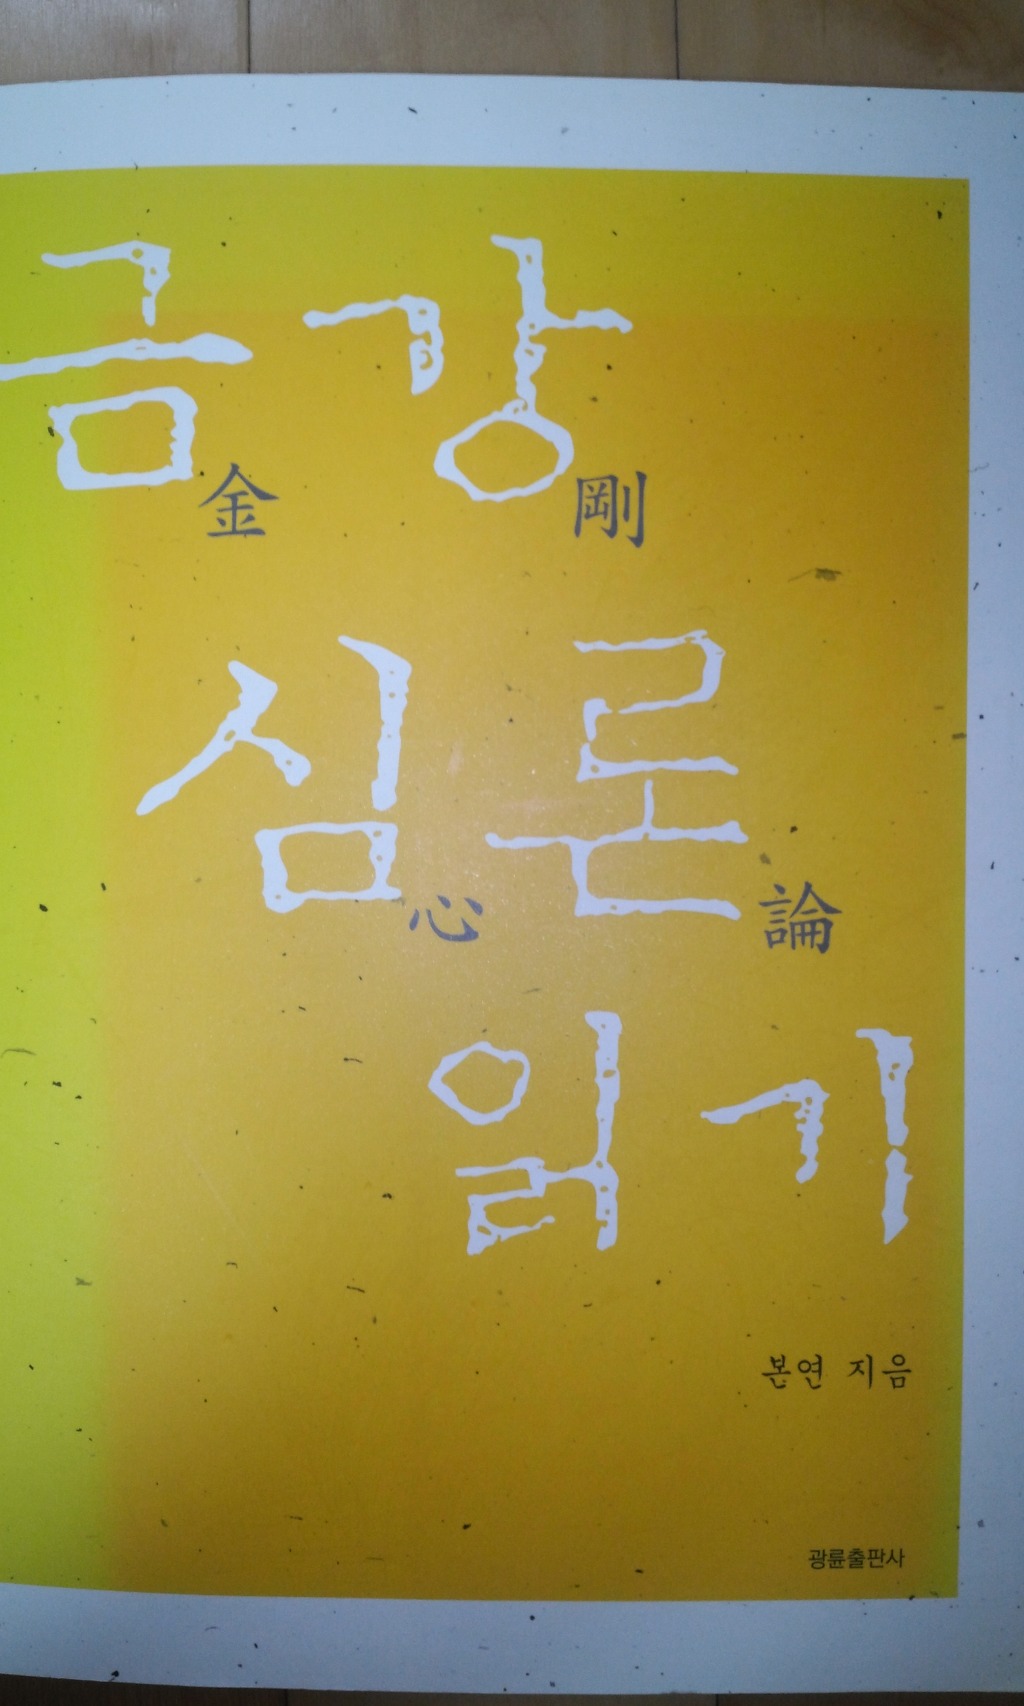 금강
金 剛
심론
心 論
읽기
본연 지음
광륜출판사